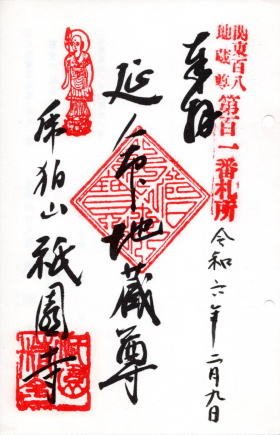 関東百八
地蔵尊
第百一番札所
奉拝
令和六年二月九日
延命地蔵尊
虎狛山祇園寺